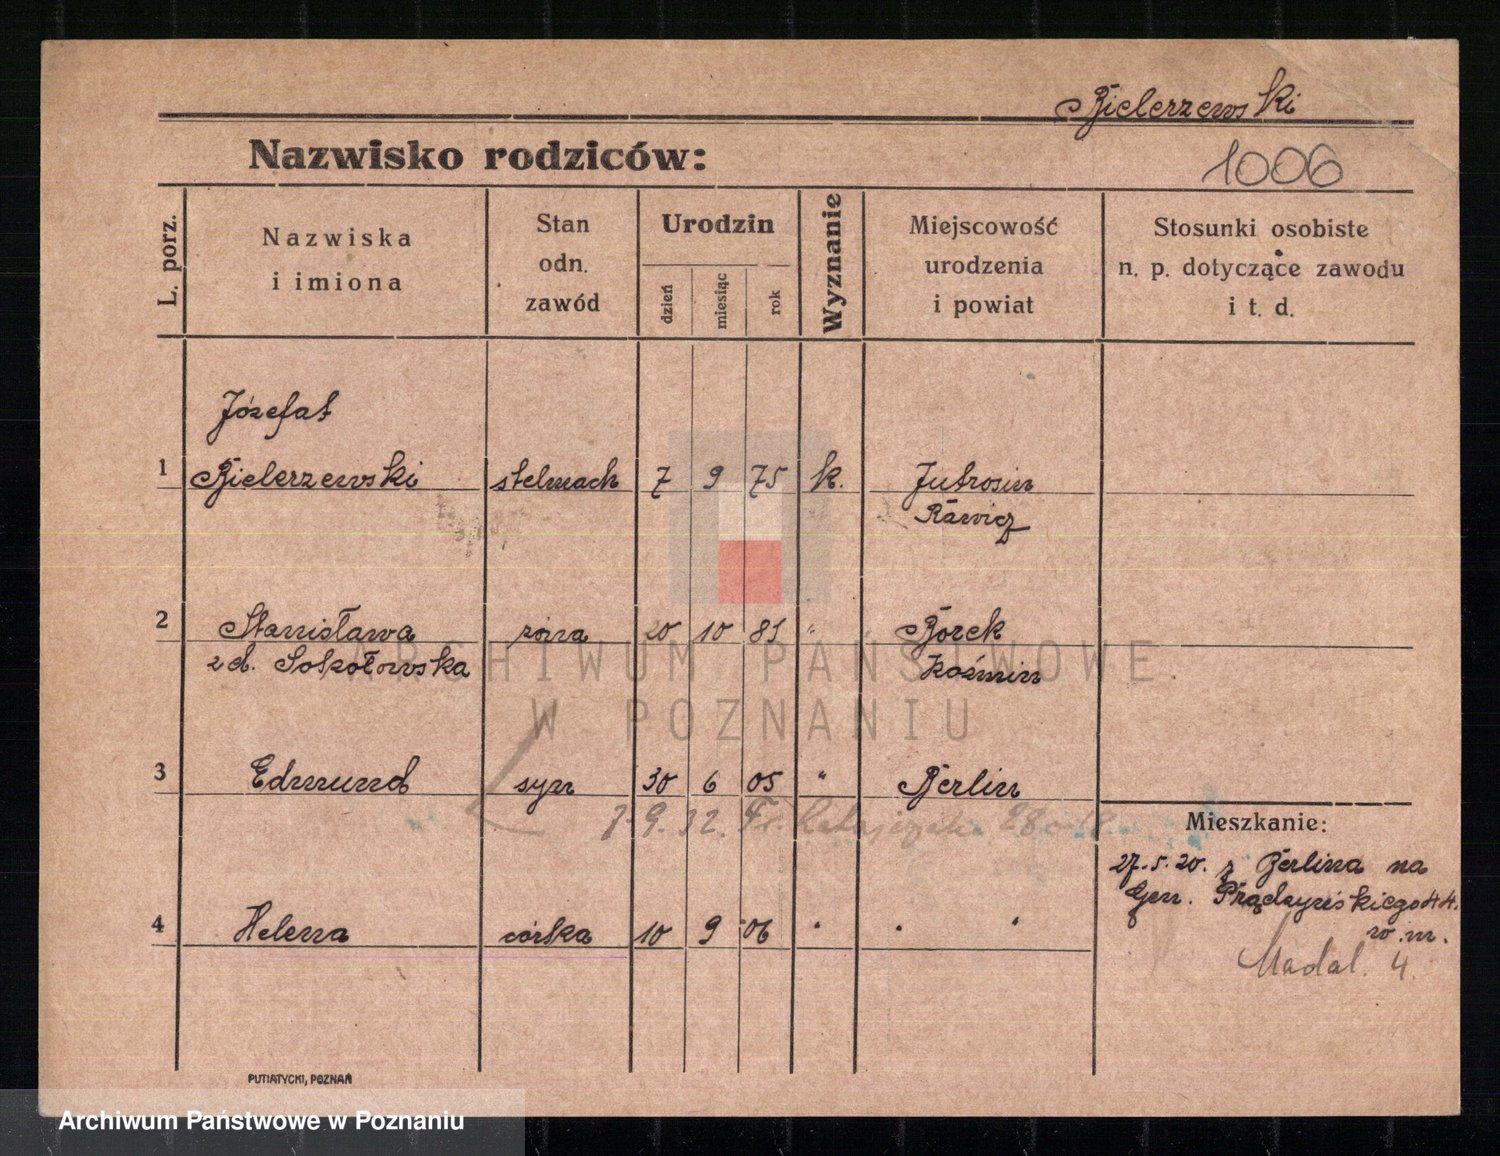 Bielerzewski
Nazwisko rodziców:
1006
L. porz.
Nazwiska
i imiona
Stan
odn.
zawód
Urodzin
dzień
miesiąc
rok
Wyznanie
Miejscowość
urodzenia
i powiat
Stosunki osobiste
n. p. dotyczące zawodu
i t. d.
Józefat
1 Bielerzewski stelmach 7 9 75 k. Jutrosin
Rawicz
2 Stanisława żona 20 10 81 " Borek
zd. Sokołowska Koźmin
ARCHIWUM PAŃSTWOWE
W POZNANIU
3 Edmund syn 30 6 05 " Berlin
7.9.32. Fr. Ratajczaka
Mieszkanie:
27.5.20. z Berlina na
Gen. Prądzyńskiego 44.
w.m.
4 Helena córka 10 9 06 " " "
Madal. 4.
PUTIATYCKI, POZNAŃ
Archiwum Państwowe w Poznaniu